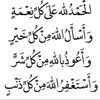 اَلْحَمْدُ لِلّٰهِ عَلٰى كُلِّ نِعْمَةٍ
وَاَسْاَلُ اللهَ مِنْ كُلِّ خَيْرٍ
وَاَعُوْذُ بِاللهِ مِنْ كُلِّ شَرٍّ
وَاَسْتَغْفِرُ اللهَ مِنْ كُلِّ ذَنْبٍ